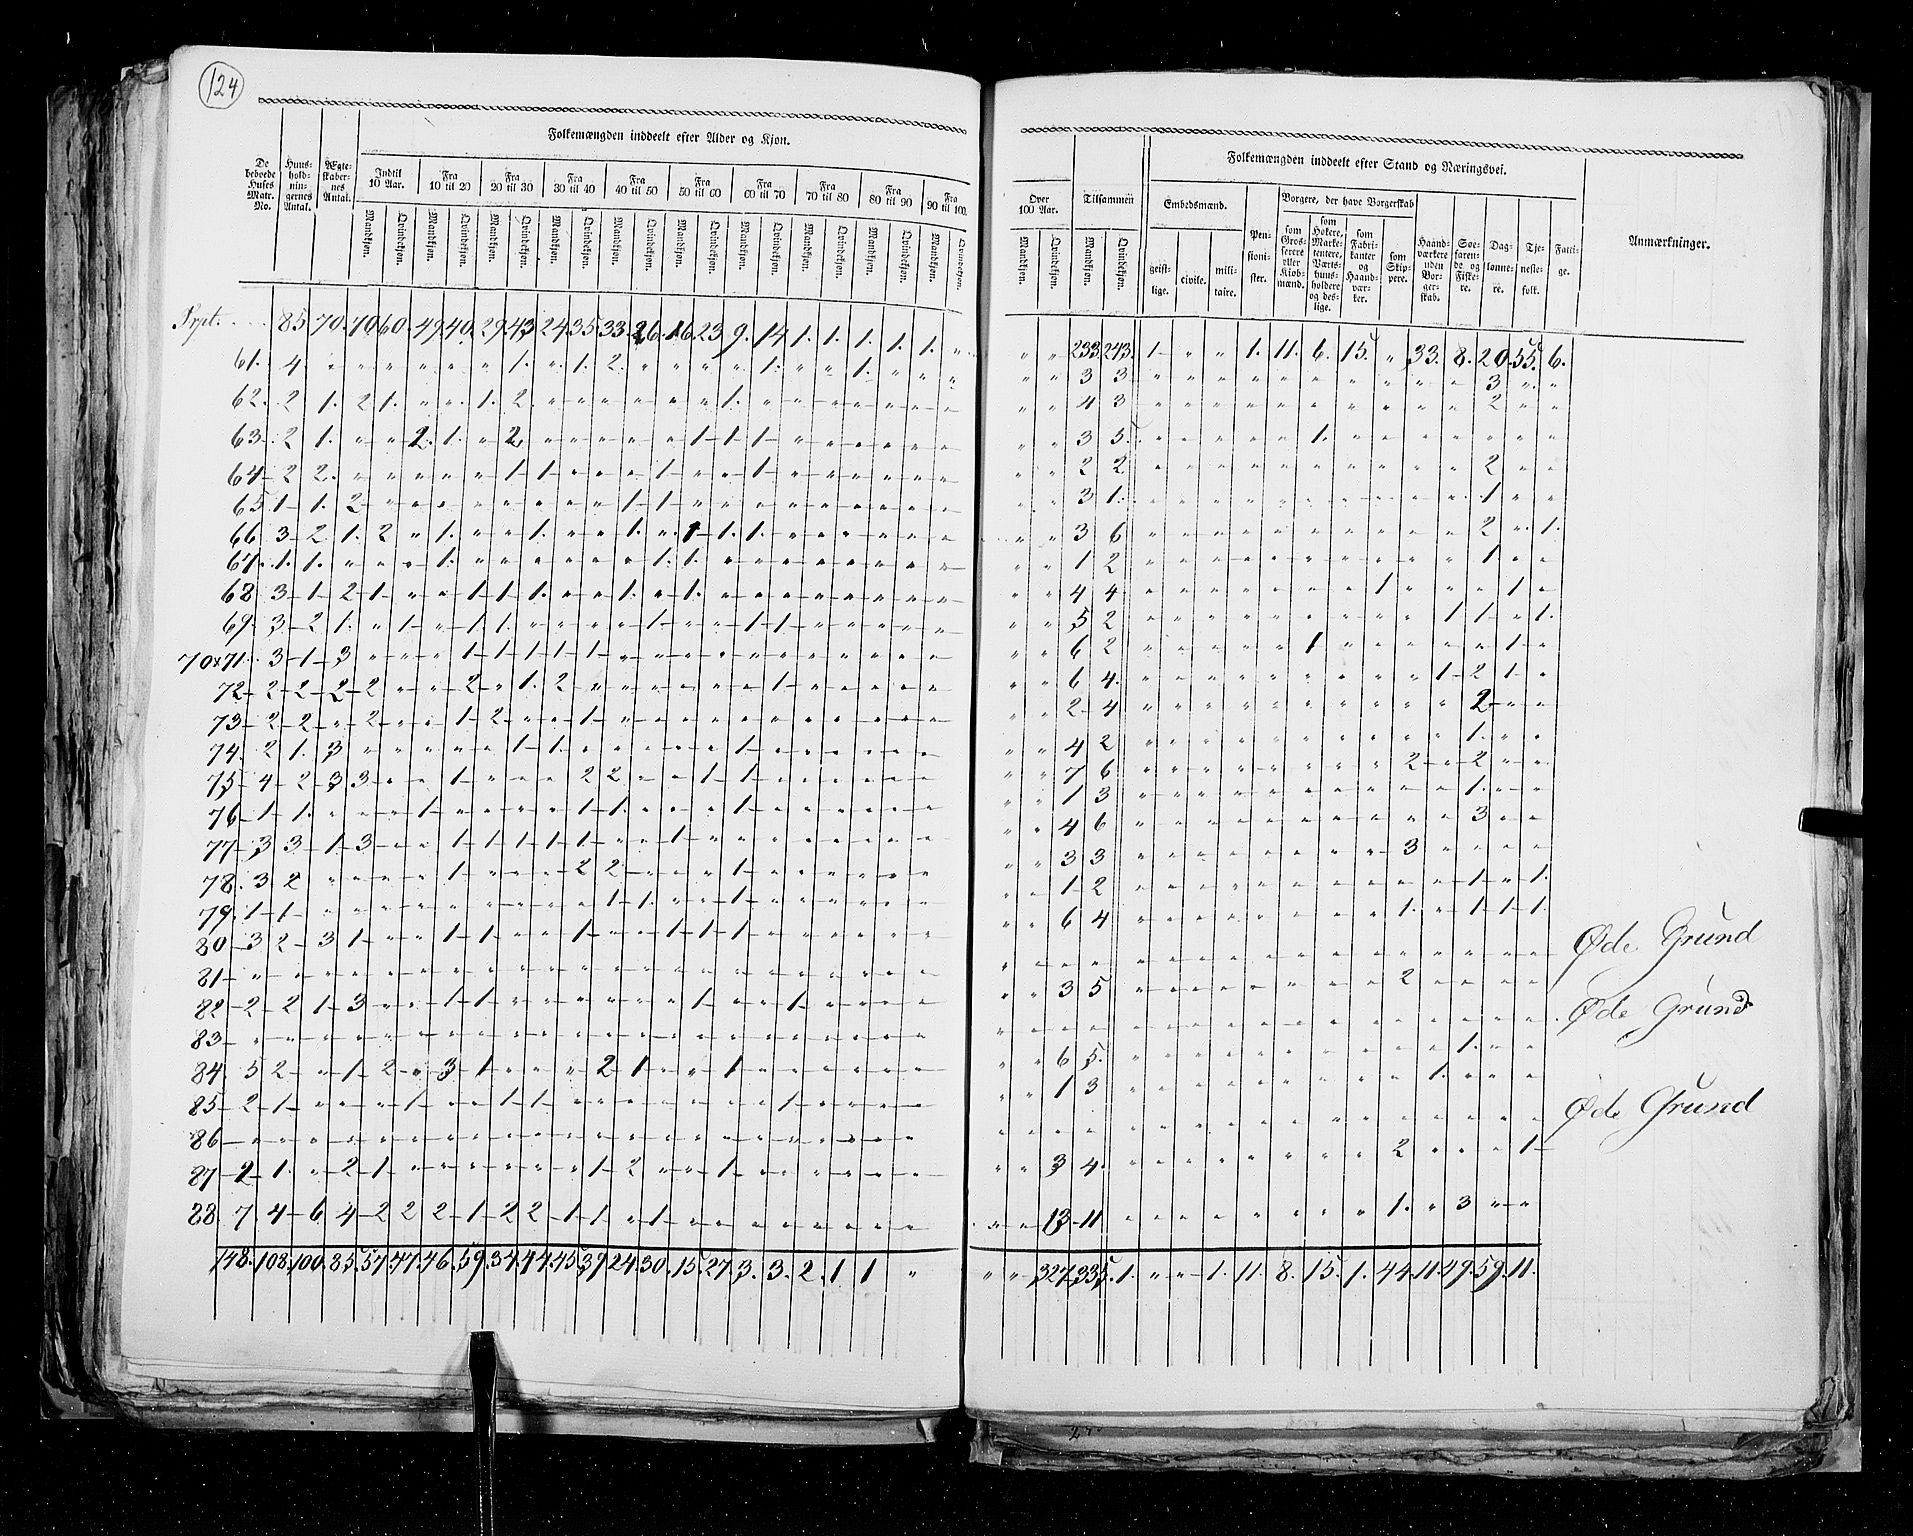 124
Folkemængden inddeelt efter Alder og Kjøn.
De beboede Huses Matr. No. Huus-hold-nin-gernes Antal. Ægte-skaber-nes Antal. Indtil 10 Aar. Fra 10 til 20 Fra 20 til 30 Fra 30 til 40 Fra 40 til 50 Fra 50 til 60 Fra 60 til 70 Fra 70 til 80 Fra 80 til 90 Fra 90 til 100.
Mandkjøn. Qvindekjøn. Mandkjøn. Qvindekjøn. Mandkjøn. Qvindekjøn. Mandkjøn. Qvindekjøn. Mandkjøn. Qvindekjøn. Mandkjøn. Qvindekjøn. Mandkjøn. Qvindekjøn. Mandkjøn. Qvindekjøn. Mandkjøn. Qvindekjøn. Mandkjøn. Qvindekjøn.
Trpt. 85 70. 70 60. 49. 40. 29. 43 24. 35. 33. 26. 16. 23 9. 14 1. 1. 1. 1. 1. "
61. 4 " " " " " " 1. " 1. 2. " " " " 1. " " 1. " " "
62. 2 1. 2 1. " " 1. 2 " " " " " " 1. " " " " " " "
63 2 1. " " 2. 1. " 2 " " " " " 1 1 1 " " " " " "
64 2 2. " " " " " 1 1 " " " 1 " " 1 " " " " " "
65 1 1. 2 " " " " " " " " 1 1 " " " " " " " " "
66 3 2 1. 2 " 1. " " 1. " " 1. " 1 1. 1. " " " " " "
67. 1. 1. " " " 1. " " " " " " 1. 1. " " " " " " " "
68 3 1 2 1 " " 1 1 1. " " 1. " 1. " " " " " " " "
69. 3 2 1. " 1 " 1. 1. " " " " 1 " " " 1 1 " " " "
70 x 71. 3 1 3 " " " 1 1 1 1 1 " " " " " " " " " " "
72 2 2 2 2 " " 2 " 1. 2 " " " " " " 1 " " " " "
73 2 2 " 2 " " 1 2 " " 1. " " " " " " " " " " "
74. 2 1. 3 " " " " " 1 1. " " " " " 1 " " " " " "
75 4 2 3 3 " " 1 " " " 2 2 " " 1 1 " " " " " "
76 1 1. " " " 1 " " " " 1 1. " " " 1 " " " " " "
77 3 3 1 3 " " 1 1 1 1 1 " " 1 " " " " " " " "
78. 3 2 " " " " 1 " " " 2 2 " " " 1 " " " " " "
79. 1 1 " " " " " " " " " 1 1. " " 1 " " " " " "
80 3 2 3 1 " " 1 1 " " 1 " " 1 1 1 " " " " " "
81 " " " " " " " " " " " " " " " " " " " " " "
82 2 2 1 3 " " 1 1 " " " " " " 1 " " 1 " " " "
83 " " " " " " " " " " " " " " " " " " " " " "
84. 5 2 " 1 2 " 3 1 " " " 2 1 " " 1 " " " " " "
85 2 1 " " " 1 " " 1 1 " " " " " " " 1 " " " "
86 " " " " " " " " " " " " " " " " " " " " " "
87 2 1. " 2 1 " " " " " " 1 2 " " 1 " " " " " "
88 7 4 6 4 2 2 2 1 2 2 1 1 " 1 " " " " " " " "
148. 108. 100. 85. 57. 47. 46. 59. 34. 44. 45. 39 24. 30. 15. 27. 3. 3. 2. 1 1 "
Folkemængden inddeelt efter Stand og Næringsvei.
Over 100 Aar. Tilsammen Embedsmænd. Pen-sioni-ster. Borgere, der have Borgerskab Haand-værkere uden Bor-ger-skab. Søe-farende og Fiske-re. Dag-lønne-re. Tje-neste-folk. Fatti-ge. Anmærkninger.
Mandkjøn. Qvindekjøn. Mandkjøn. Qvindekjøn. geist-lige. civile. mili-taire. som Gros-serere eller Kiøb-mænd. som Høkere, Marke-tentere, Værts-huus-holdere og des-lige. som Fabri-kanter og Haand-vær-ker. som Skip-pere.
" " 233 243. 1 " " 1. 11. 6. 15. " 33. 8. 20. 55. 6.
" " 3 3 " " " " " " " " " " 3 " "
" " 4 3 " " " " " " " " " " 2 " "
" " 3 5. " " " " " 1. " " " " " " "
" " 2 2 " " " " " " " " " " 2 " "
" " 3 1. " " " " " " " " " " 1 " "
" " 3 6 " " " " " " " " " " 2 " 1.
" " 1 2 " " " " " " " " " " 1 " "
" " 4 4 " " " " " " " 1 " " " 1 "
" " 5 2 " " " " " " " " " 1 1 " 1.
" " 6 2 " " " " " 1 " " " " " 1 "
" " 6 4. " " " " " " " " " 1 2 1 "
" " 2 4 " " " " " " " " " " 2 " "
" " 4 2 " " " " " " " " " " 1. " "
" " 7 6 " " " " " " " " 2 " 2 " "
" " 1 3 " " " " " " " " " " 1. " "
" " 4 6 " " " " " " " " " " 3 " "
" " 3 3 " " " " " " " " 3 " " " "
" " 1 2 " " " " " " " " " " 1 " 1.
" " 6 4 " " " " " " " " 1. " 1 1 1.
" " " " " " " " " " " " " " " " " Øde Grund
" " 3 5 " " " " " " " " 2 " " " "
" " " " " " " " " " " " " " " " " Øde Grund
" " 6 5. " " " " " " " " " " 1. " "
" " 1 3 " " " " " " " " " 1. " " "
" " " " " " " " " " " " " " " " " Øde Grund
" " 3 4. " " " " " " " " 2 " " " 1
" " 13 11 " " " " " " " " 1. " 3 " "
" " 327 335. 1. " " 1. 11. 8. 15. 1. 44. 11. 49. 59. 11.